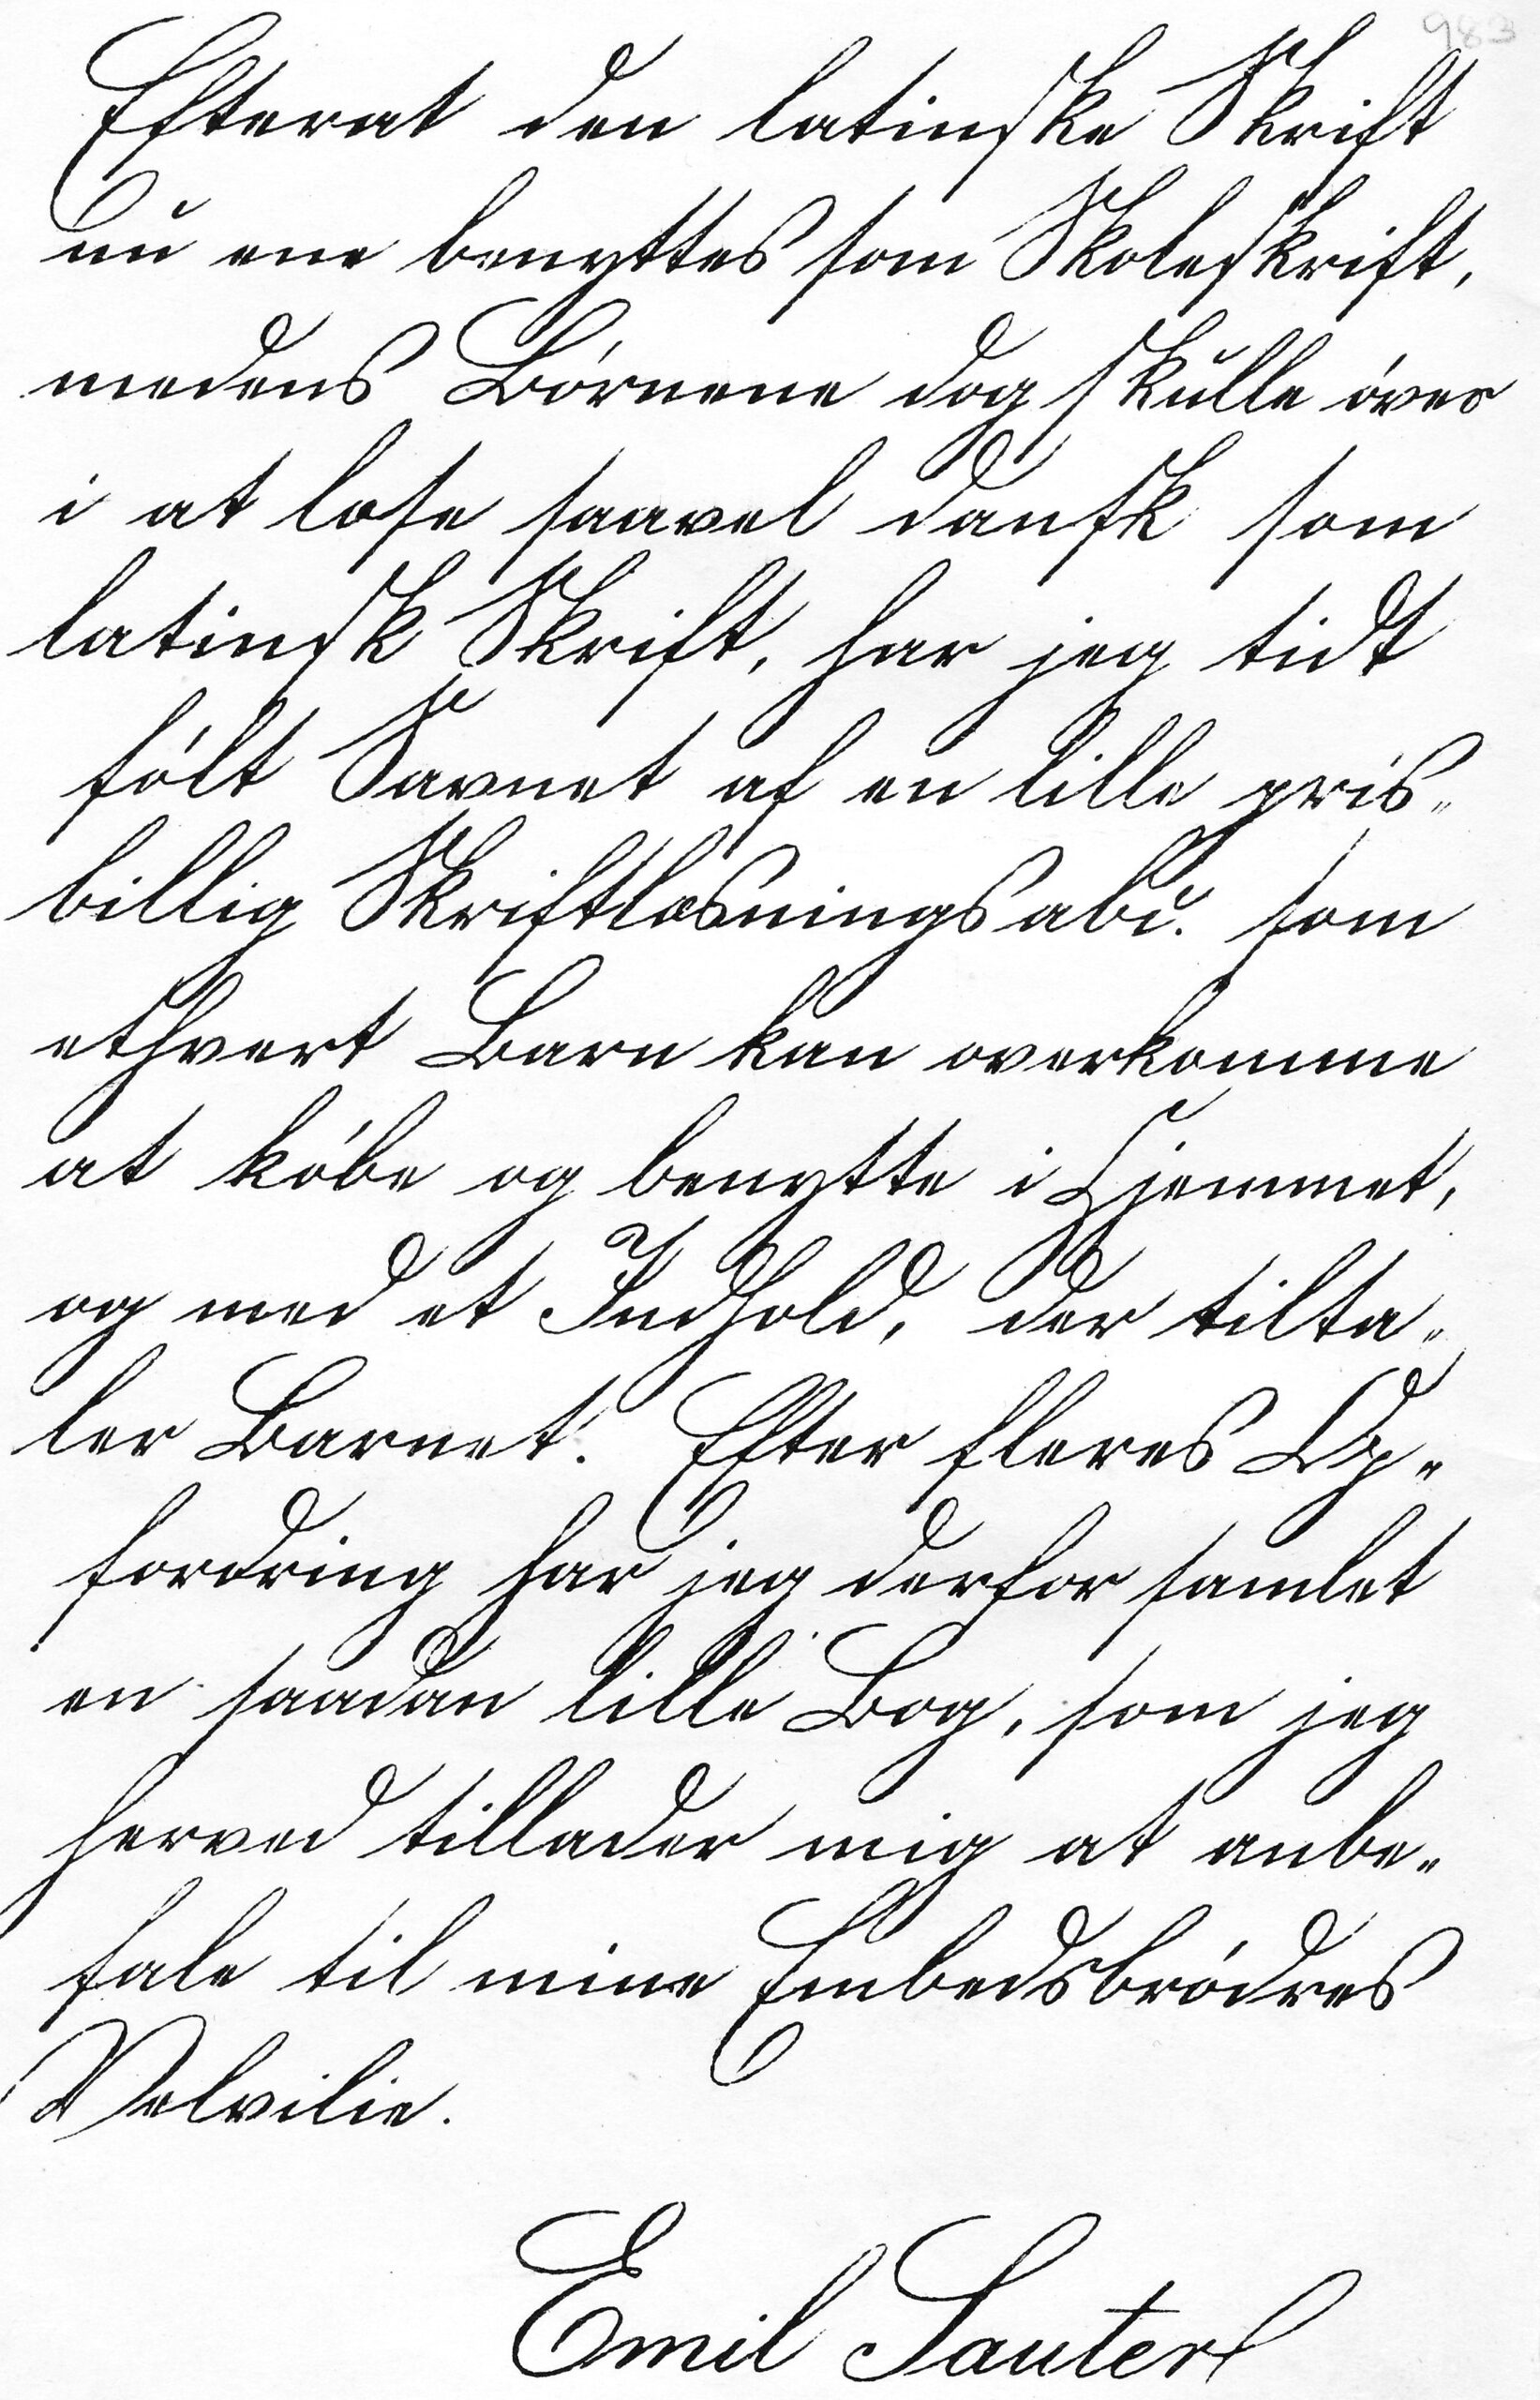 983
Efterat den latinske Skrift
nu ene benyttes som Skoleskrift,
medens Börnene dog skulle öves
i at læse saavel dansk som
latinsk Skrift, har jeg tidt
fölt Savnet af en lille pris„
billig Skriftlæsningsabc. som
ethvert Barn kan overkomme
at köbe og benytte i Hjemmet,
og med et Indhold, der tilta„
ler Barnet. Efter fleres Op„
fordring har jeg derfor samlet
en saadan lille Bog, som jeg
herved tillader mig at anbe„
fale til mine Embedsbrödres
Velvilie.
Emil Sauter